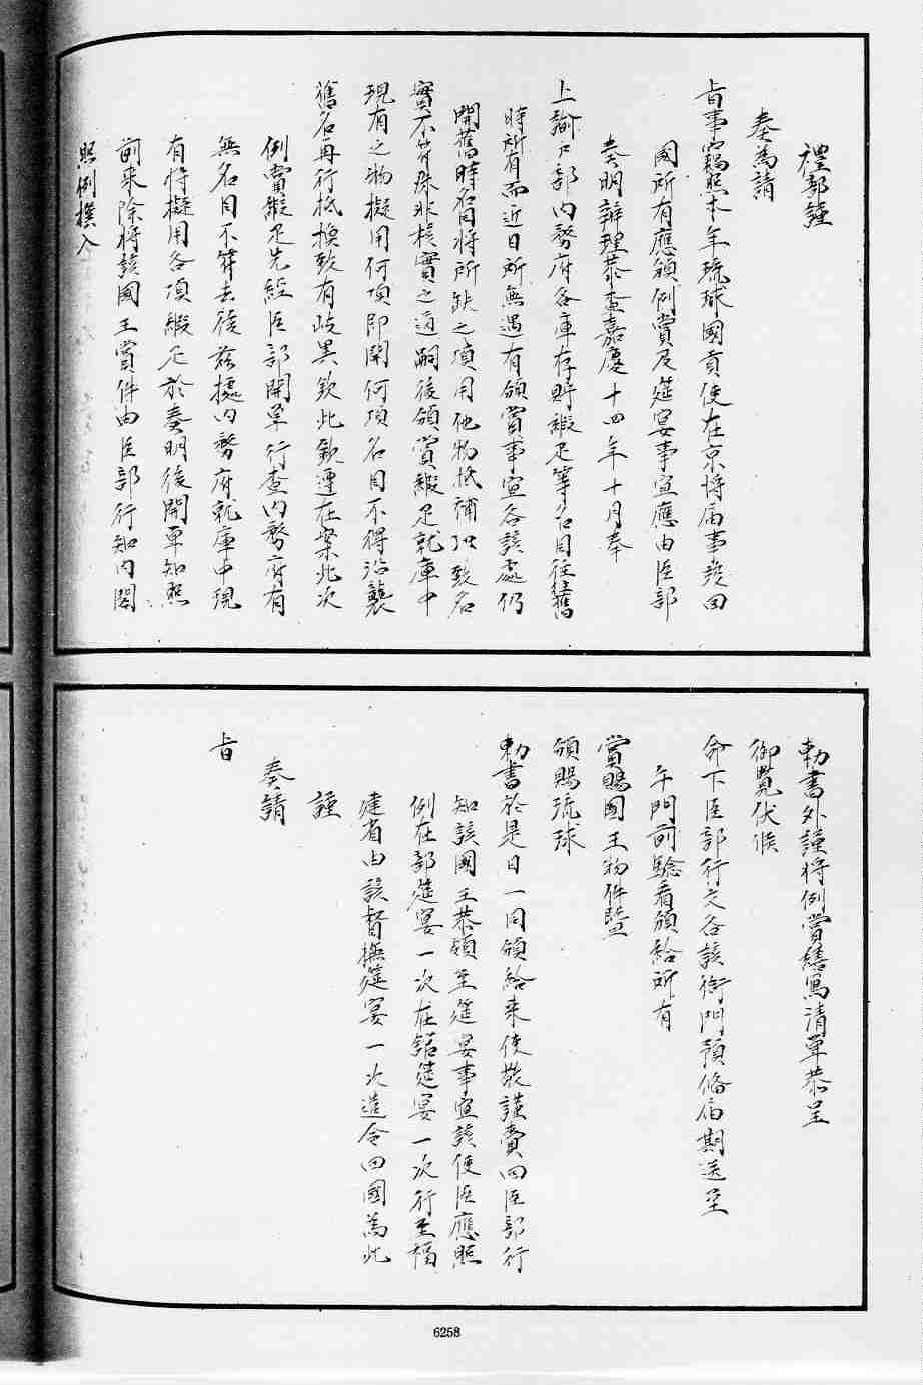 禮部謹
奏為請
旨事竊照本年琉球國貢使在京將屆事竣回
國所有應頒例賞及筵宴事宜應由臣部
奏明辦理恭查嘉慶十四年十月奉
上諭戶部內務府各庫存貯緞疋等名目往往舊
時所有而近日所無遇有頒賞事宜各該處仍
開舊時名目將所缺之項用他物抵補以致名
實不符殊非核實之道嗣後頒賞緞疋就庫中
現有之物擬用何項即開何項名目不得沿襲
舊名再行抵換致有歧異欽此欽遵在案此次
例賞緞疋先經臣部開單行查內務府有
無名目不符去後茲據內務府就庫中現
有將擬用各項緞疋於奏明後開單知照
前來除將該國王賞件由臣部行知內閣
照例撰入
勅書外謹將例賞繕寫清單恭呈
御覽伏候
命下臣部行文各該衙門預備屆期送至
午門前驗看頒給所有
賞賜國王物件暨
頒賜琉球
勅書於是日一同頒給來使敬謹賫回臣部行
知該國王恭領至筵宴事宜該使臣應照
例在部筵宴一次在館筵宴一次行至福
建省由該督撫筵宴一次遣令回國為此
謹
奏請
旨
6258